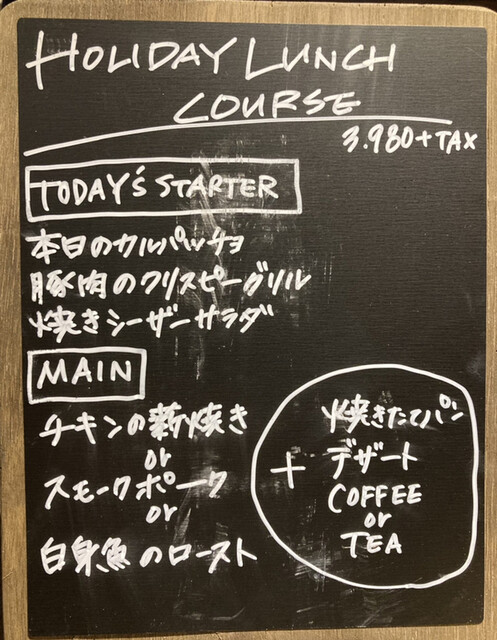 HOLIDAY LUNCH
COURSE
3.980+TAX
TODAY'S STARTER
本日のカルパッチョ
豚肉のクリスピーグリル
焼きシーザーサラダ
MAIN
チキンの薪焼き
or
スモークポーク
or
白身魚のロースト
+
焼きたてパン
デザート
COFFEE
or
TEA